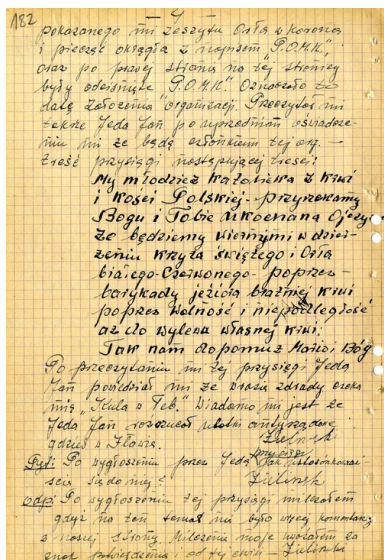 182
- 4 -
pokazanego mi zeszytu Orła w koronie
i pieczęć okrągła z napisem "P.O.M.K."
oraz po prawej stronie na tej stronicy
były odciśnięte "P.O.M.K." Oznaczało to
datę założenia organizacji. Przeczytał mi
także Jeda Jan po uprzednim oświadcze-
niu mi że będę członkiem tej org. -
treść przysięgi następującej treści:
My młodzież katolicka z krwi
i kości Polskiej - przyrzekamy
Bogu i Tobie ukochana Ojczy
że będziemy wiernymi w dzier-
żeniu krzyża świętego i Orła
białego-Czerwonego - poprzez
barykady jeziora bratniej krwi
poprzez Wolność i niepodległość
aż do wylewu własnej krwi.
Tak nam dopomóż Boże i Bóg
Po przeczytaniu mi tej przysięgi Jeda
Jan powiedział mi że w razie zdrady czeka
mnie "Kula w Łeb". Wiadomo mi jest że
Jeda Jan rozrzucał ulotki antyrządowe
gdzieś w Iławie.
Pyt: Po wygłoszeniu przez Jedę Jan przysięgi
ście sądo niej?
odp: Po wygłoszeniu tej przysięgi milczałem
gdyż na ten temat nie było więcej komentarzy
z naszej strony. Milczenie moje uważałem za
znak potwierdzenia i od tej chwili